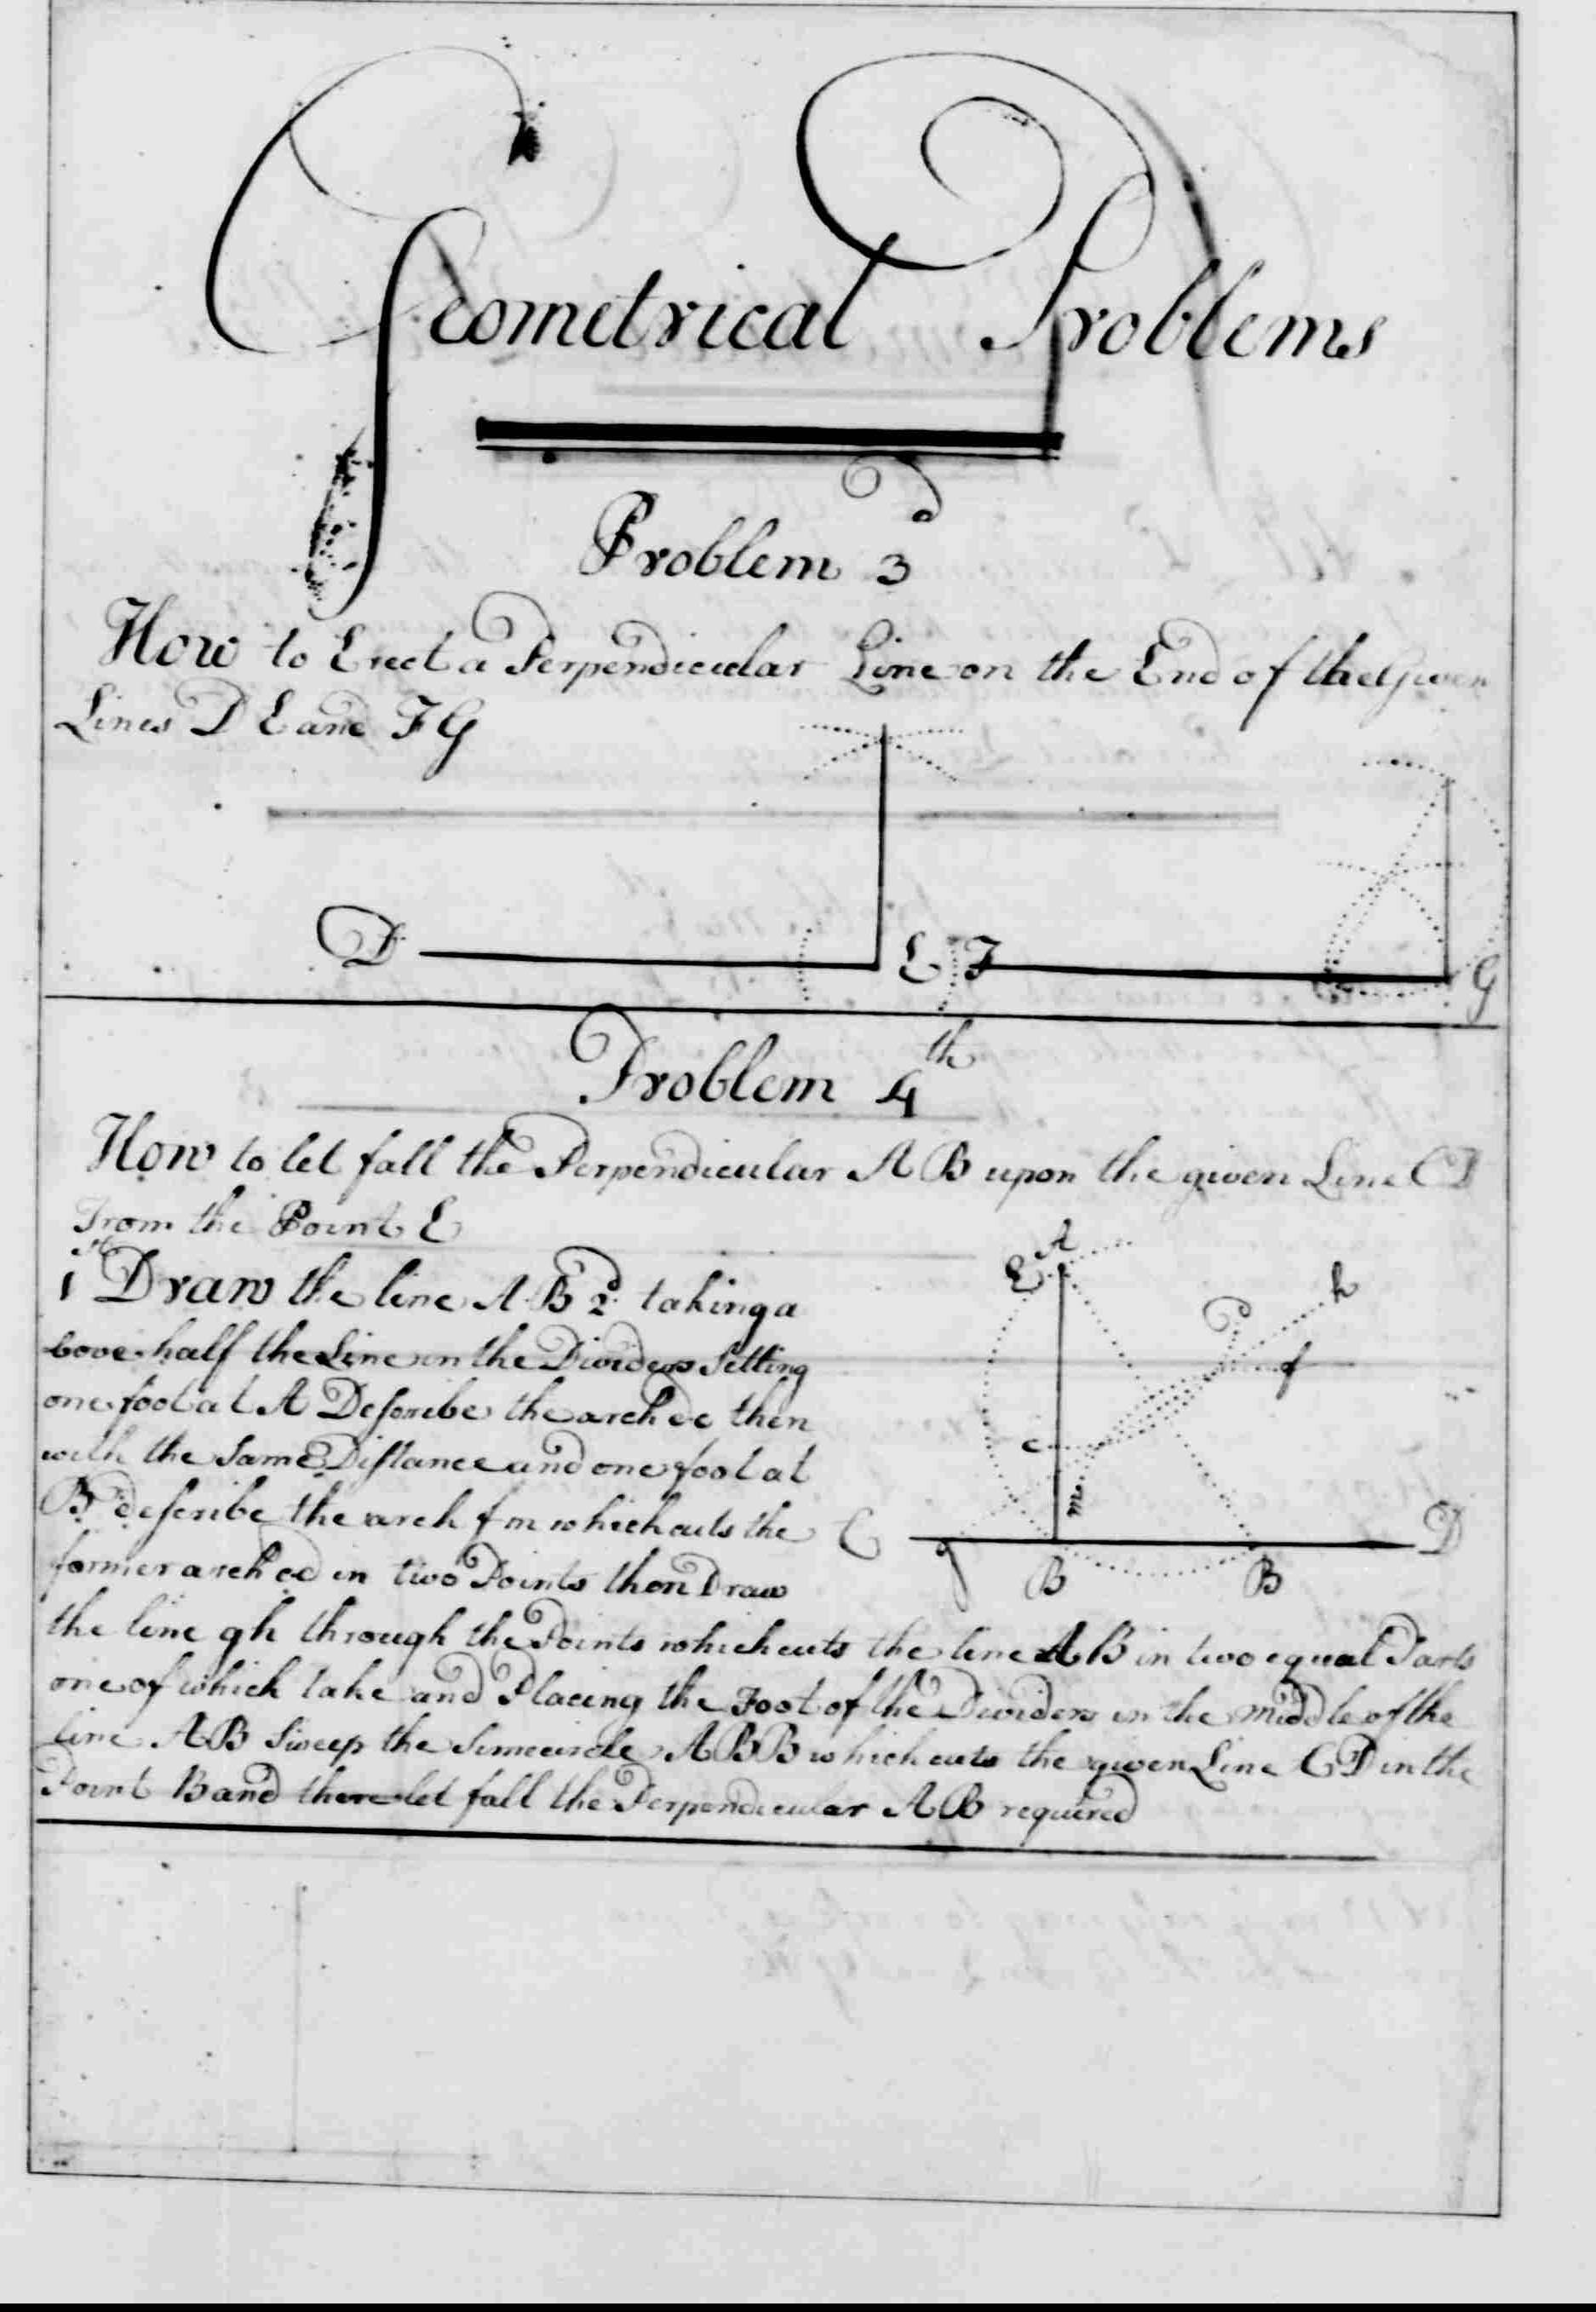 Geometrical Problems
Problem 3d
How to Erect a Perpendicular Line on the End of the Given
Lines D E and F G
D E F G
Problem 4th
How to let fall the Perpendicular A B upon the given Line C D
From the Point E
1st Draw the line A B 2d taking a
bove half the Line on the Dividers Setting
one foot at A Describe the arch dc then
with the Same Distance and one foot at
B describe the arch f m which cuts the
former arch cd in two Points then Draw
the line gh through the Points which cuts the line AB in two equal Parts
one of which take and Placing the Foot of the Dividers in the middle of the
line AB Sweep the Semecircle ABB which cuts the given Line CD in the
Point B and there let fall the Perpendicular AB required
A
E
h
d
f
c
m
C g B B D